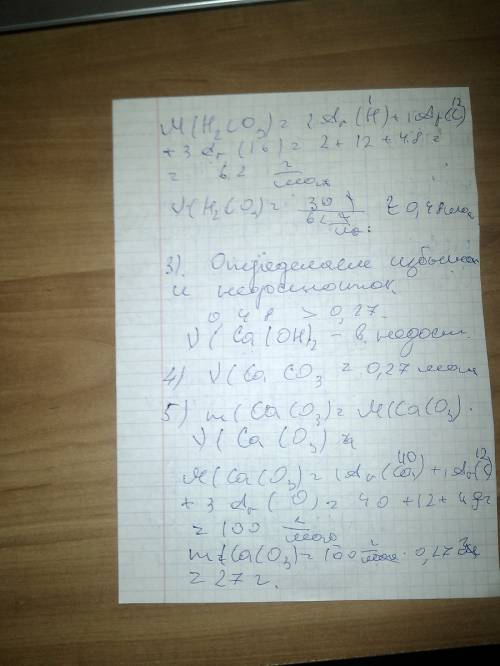 M(H₂CO₃) = 2Ar(H)¹ + 1Ar(C)¹²
+ 3Ar(16) = 2 + 12 + 48 =
= 62 г/моль
ν(H₂CO₃) = 30 г / 62 г/моль ≈ 0,48 моль
3) Определяем избыток
и недостаток
0,48 > 0,27.
ν(Ca(OH)₂ - в недост.
4) ν(CaCO₃ = 0,27 моль
5) m(CaCO₃) = M(CaCO₃) ·
ν(CaCO₃)
M(CaCO₃) = 1Ar(Ca)⁴⁰ + 1Ar(C)¹²
+ 3Ar(O) = 40 + 12 + 48 =
= 100 г/моль
m(CaCO₃) = 100 г/моль · 0,27 =
= 27 г.